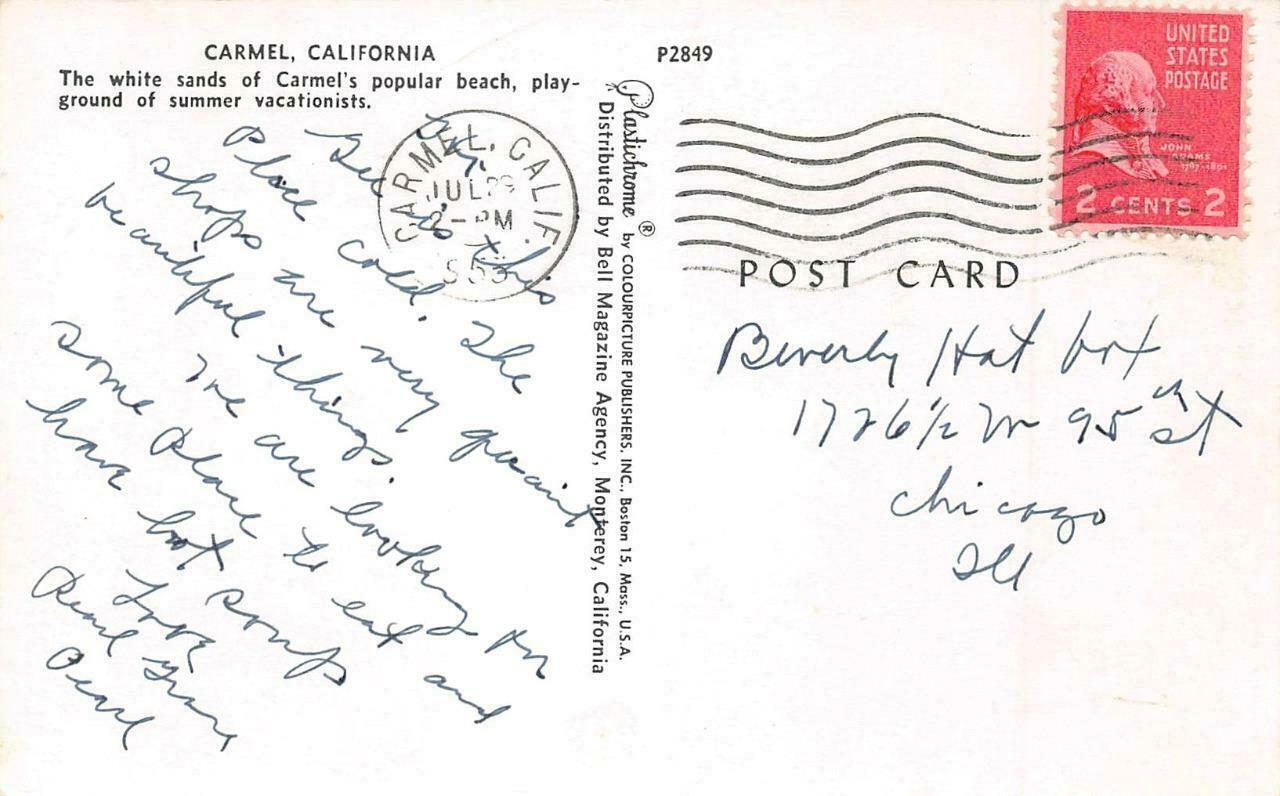 CARMEL, CALIFORNIA
The white sands of Carmel's popular beach, play-
ground of summer vacationists.
P2849
Gee is this
Place cold. The
shops are very quaint
beautiful things.
We are looking for
some place to eat and
have hot soup
Love
Pearl
Pearl
CARMEL, CALIF.
JUL 29
2 - PM
1953
Plastichrome ® by COLOURPICTURE PUBLISHERS, INC., Boston 15, Mass., U.S.A.
Distributed by Bell Magazine Agency, Monterey, California
UNITED
STATES
POSTAGE
JOHN
ADAMS
1797-1801
2 CENTS 2
POST CARD
Beverly Hat box
1726½ W 95th St
Chicago
Ill